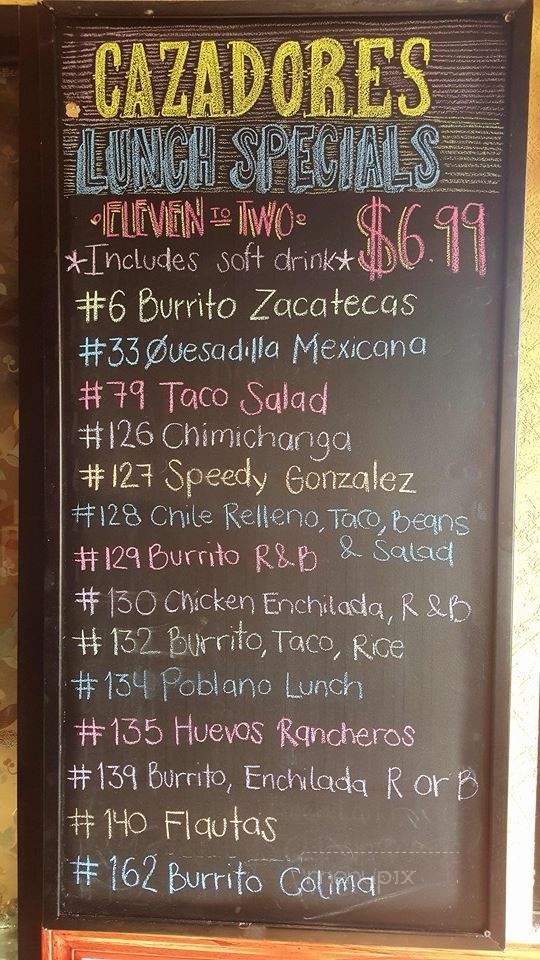 CAZADORES
LUNCH SPECIALS
ELEVEN TO TWO $6.99
*Includes soft drink*
#6 Burrito Zacatecas
#33 Quesadilla Mexicana
#79 Taco Salad
#126 Chimichanga
#127 Speedy Gonzalez
#128 Chile Relleno, Taco, Beans
& Salad
#129 Burrito R&B
#130 Chicken Enchilada, R &B
#132 Burrito, Taco, Rice
#134 Poblano Lunch
#135 Huevos Rancheros
#139 Burrito, Enchilada R or B
#140 Flautas
#162 Burrito Colima
menupix